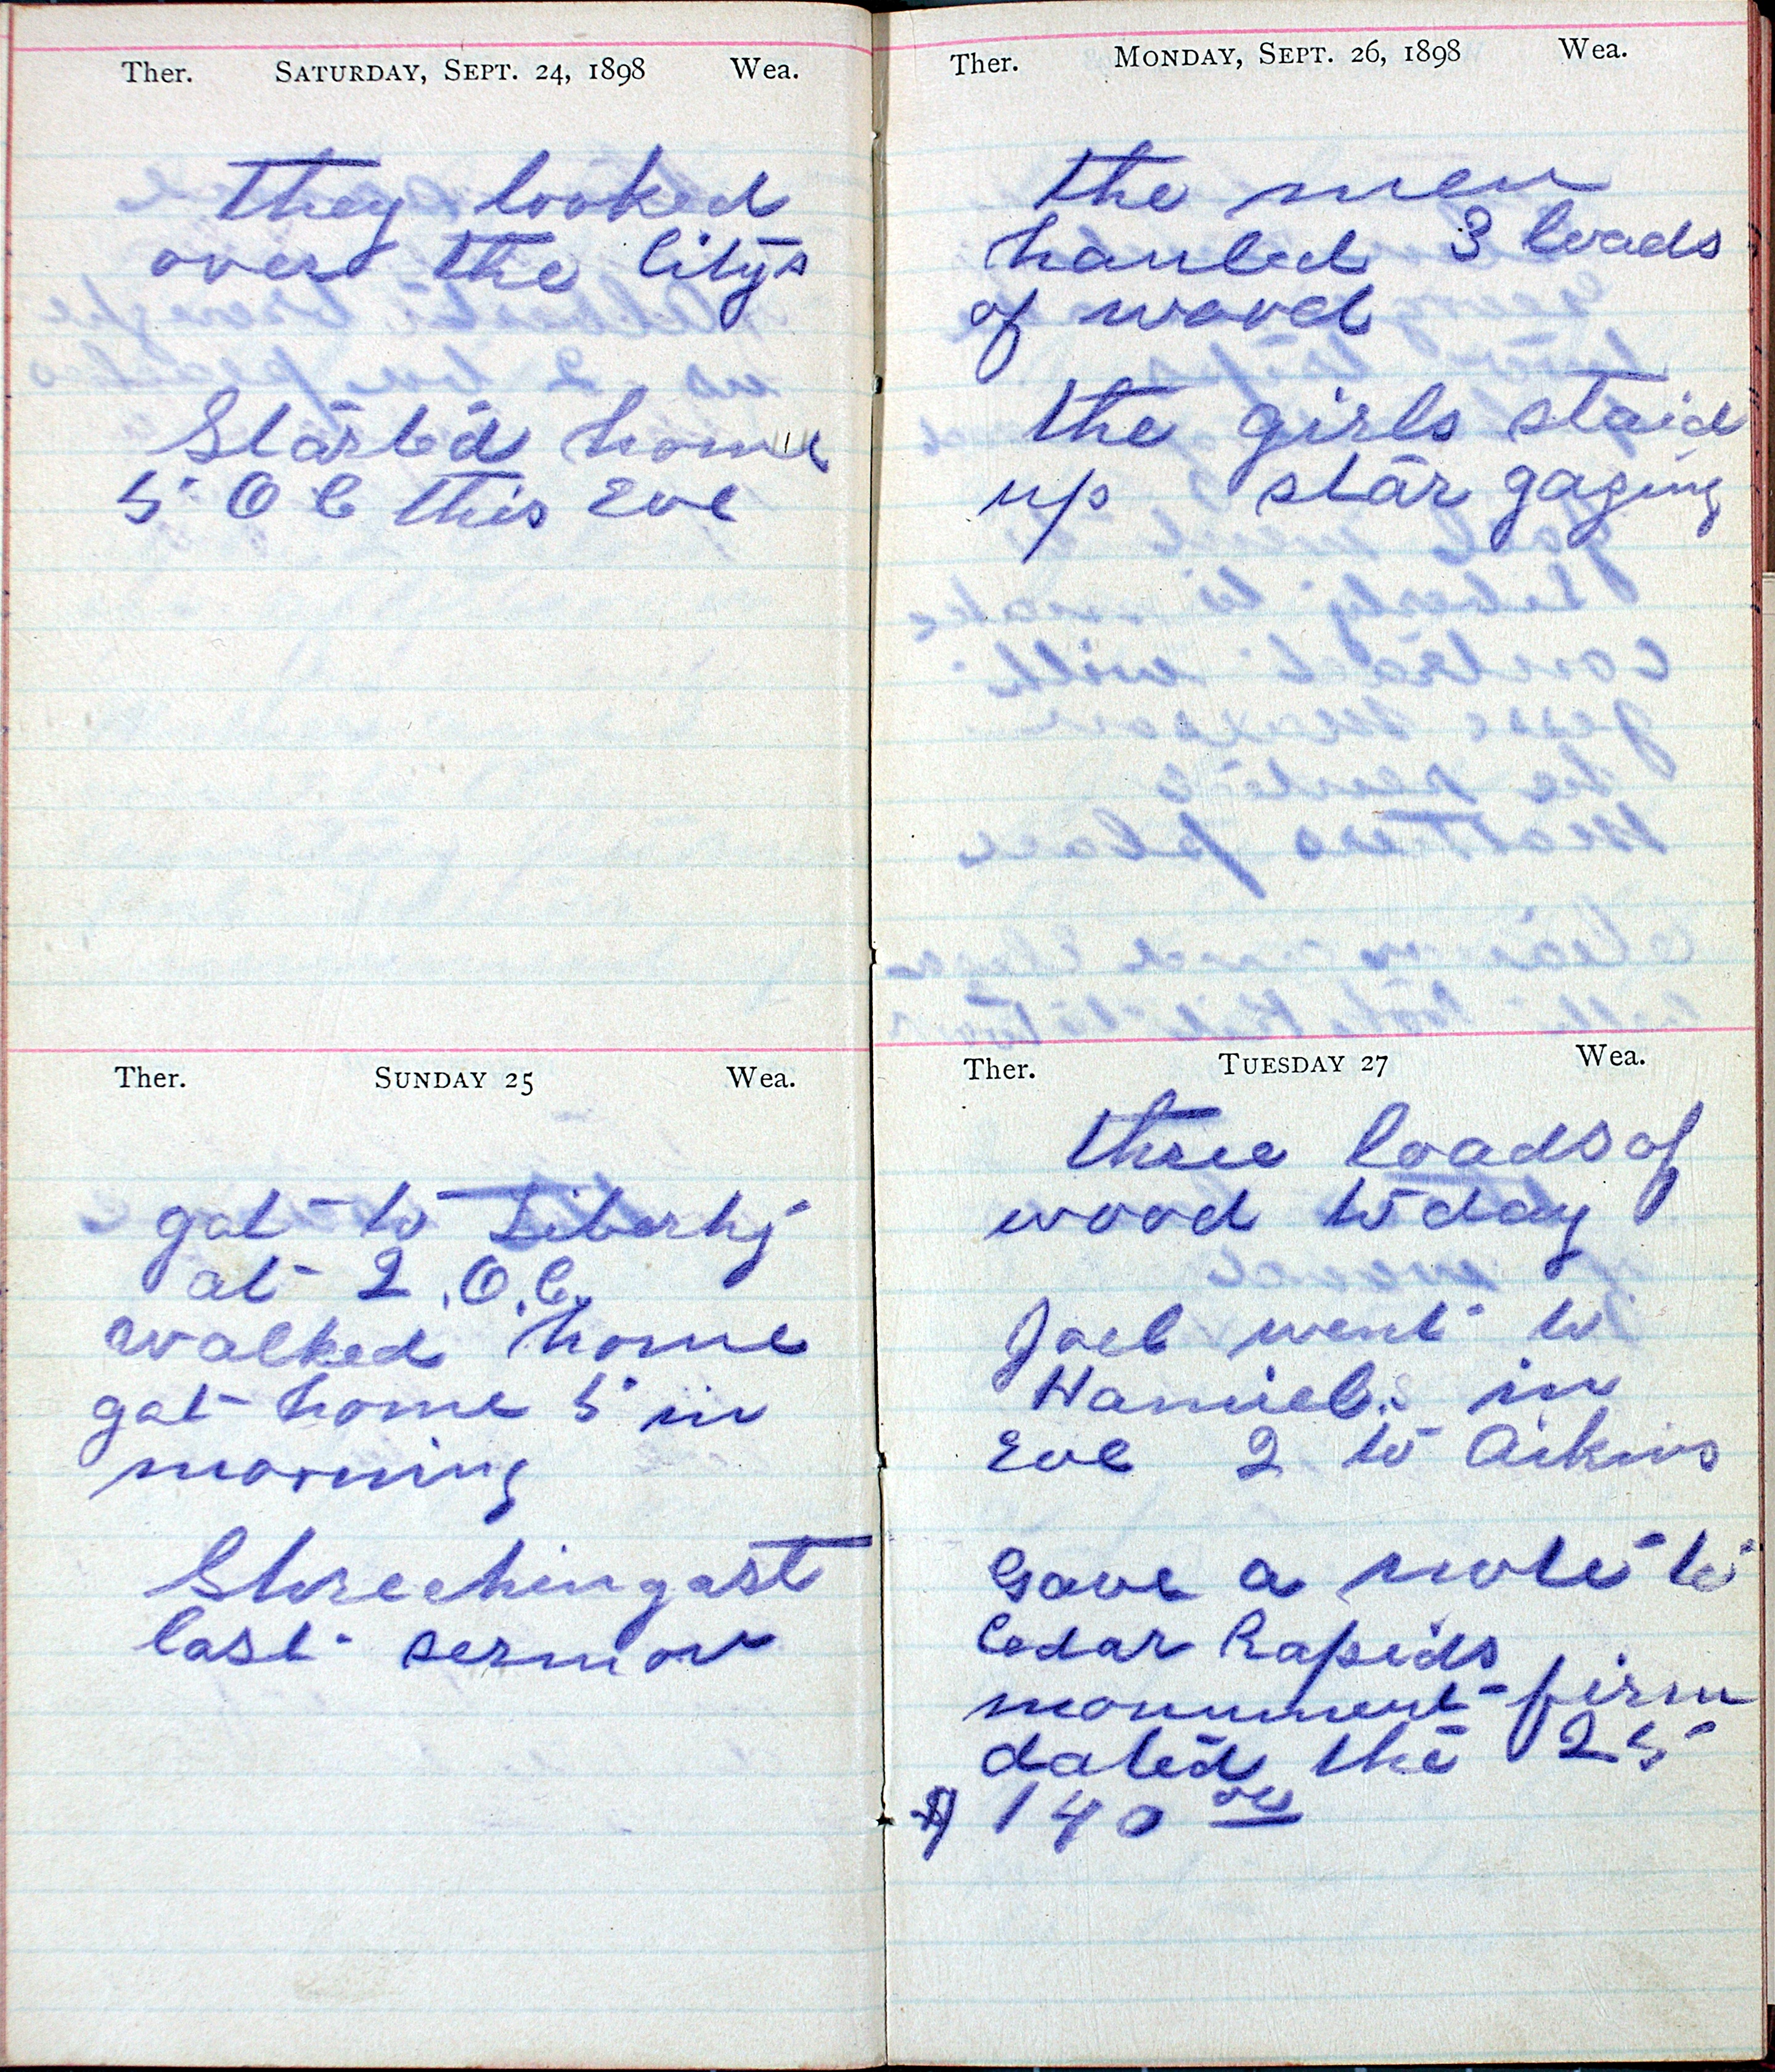 Ther. SATURDAY, SEPT. 24, 1898 Wea.
they looked
over the Citys
Started home
5 O C this Eve
Ther. SUNDAY 25 Wea.
got to Liberty
at 2 .O.C.
walked home
got home 5 in
morning
last sermon
Ther. MONDAY, SEPT. 26, 1898 Wea.
the men
hauled 3 loads
of wood
the girls staid
up star gazing
Ther. TUESDAY 27 Wea.
three loads of
wood to day
Joel went to
Hamiels in
Eve 2 to Aikins
Gave a note to
Cedar Rapids
monument firm
dated the 25
$ 140 00